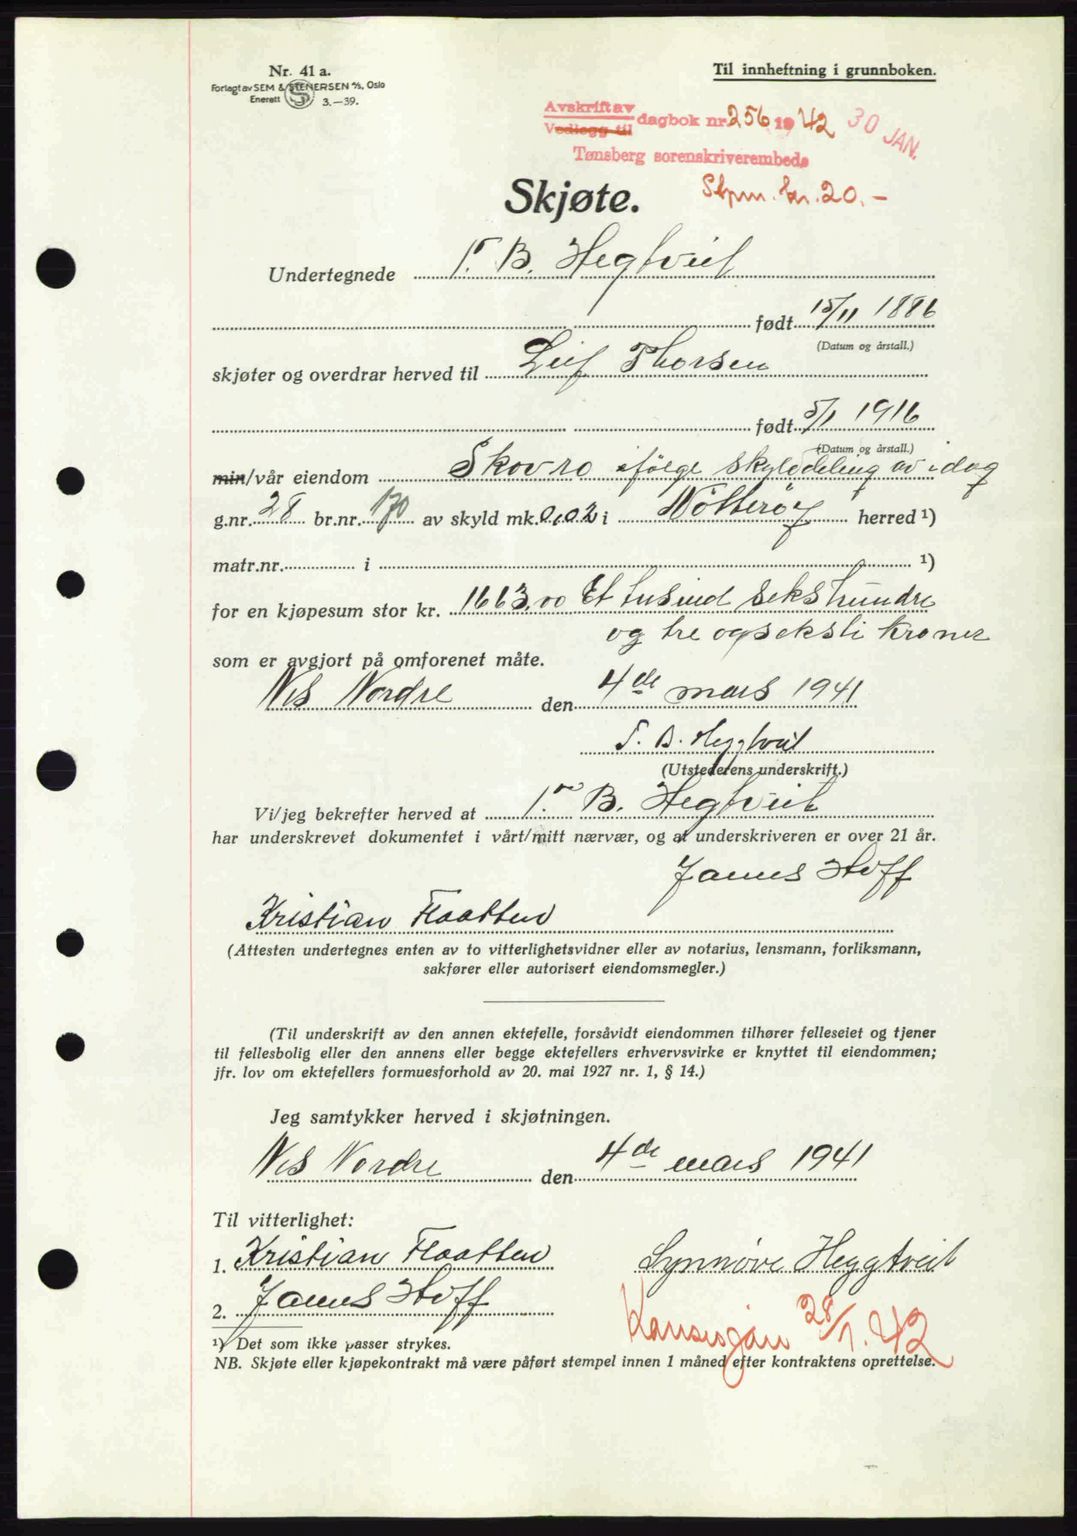 Nr. 41 a.
Forlagt av SEM & STENERSEN A/S, Oslo
Enerett S 3.—39.
Til innheftning i grunnboken.
Avskrift av
Vedlegg til dagbok nr. 256 1942 30 JAN.
Tønsberg sorenskriverembede
Stpm. kr. 20.-
Skjøte.
Undertegnede T. B. Hegtveit
født 15/11 1886
(Datum og årstall.)
skjøter og overdrar herved til Leif Thorsen
født 5/1 1916
(Datum og årstall.)
min/vår eiendom Skovro ifölge skylddeling av idag
g.nr. 28 br.nr. 170 av skyld mk. 0,02 i Nötterøy herred ¹)
matr.nr. i ¹)
for en kjøpesum stor kr. 1663,00 Et tusind sekshundre
og tre og seksti kroner
som er avgjort på omforenet måte.
Nes Nordre den 4de mars 1941
T. B. Heggtveit
(Utstederens underskrift.)
Vi/jeg bekrefter herved at T. B. Hegtveit
har underskrevet dokumentet i vårt/mitt nærvær, og at underskriveren er over 21 år.
James Hoff
Kristian Flaatten
(Attesten undertegnes enten av to vitterlighetsvidner eller av notarius, lensmann, forliksmann,
sakfører eller autorisert eiendomsmegler.)
(Til underskrift av den annen ektefelle, forsåvidt eiendommen tilhører felleseiet og tjener
til fellesbolig eller den annens eller begge ektefellers erhvervsvirke er knyttet til eiendommen;
jfr. lov om ektefellers formuesforhold av 20. mai 1927 nr. 1, § 14.)
Jeg samtykker herved i skjøtningen.
Nes Nordre den 4de mars 1941
Til vitterlighet:
1. Kristian Flaatten Synnöve Heggtveit
2. James Hoff
28/1. 42
¹) Det som ikke passer strykes.
NB. Skjøte eller kjøpekontrakt må være påført stempel innen 1 måned efter kontraktens oprettelse.